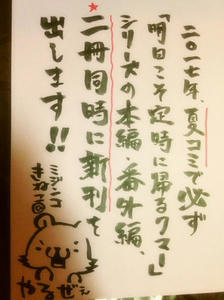 二〇一七年、夏コミで必ず
「明日こそ定時に帰るクマー」
シリーズの本編・番外編、
★二冊同時に新刊を
出します!!
ミジンコ
きねつ香
やるぜぇ